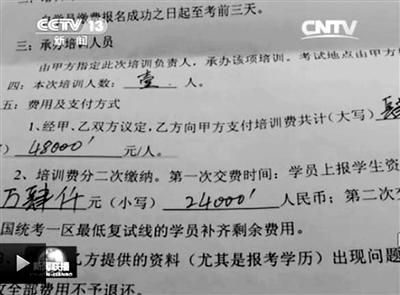 CCTV 13
新闻
CNTV
自学员缴费报名成功之日起至考前三天。
三：承办培训人员
由甲方指定此次培训负责人，承办该项培训。考试地点由甲方
四：本次培训人数： 壹 人。
五：费用及支付方式
1、经甲、乙双方议定，乙方向甲方支付培训费共计（大写）肆
） 48000 元/人。
2、培训费分二次缴纳。第一次交费时间：学员上报学生资
万肆仟元（小写） 24000 人民币；第二次交
国统考一区最低复试线的学员补齐剩余费用。
乙方提供的资料（尤其是报考学历）出现问题
全部费用不予退还。
新闻联播